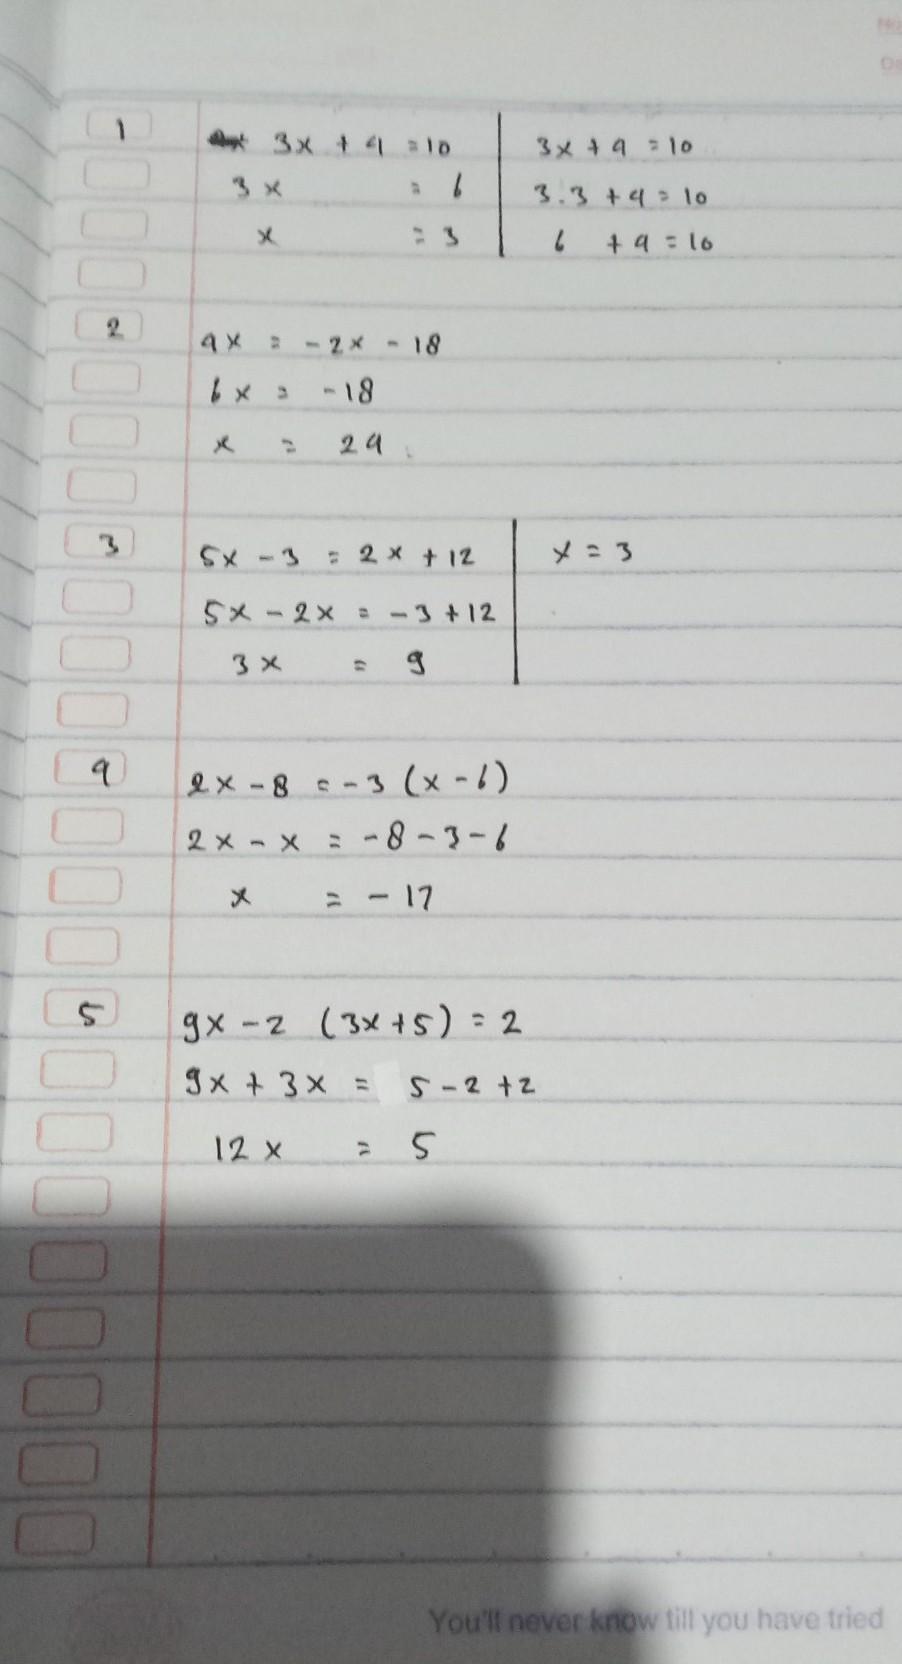 1 3x + 4 = 10 3x + 4 = 10
3x = 6 3.3 + 4 = 10
x = 3 6 + 4 = 10
2 4x = -2x - 18
6x = -18
x = 24
3 5x - 3 = 2x + 12 x = 3
5x - 2x = -3 + 12
3x = 9
4 2x - 8 = -3 (x - 6)
2x - x = -8 - 3 - 6
x = -17
5 9x - 2 (3x + 5) = 2
9x + 3x = 5 - 2 + 2
12x = 5
You'll never know till you have tried